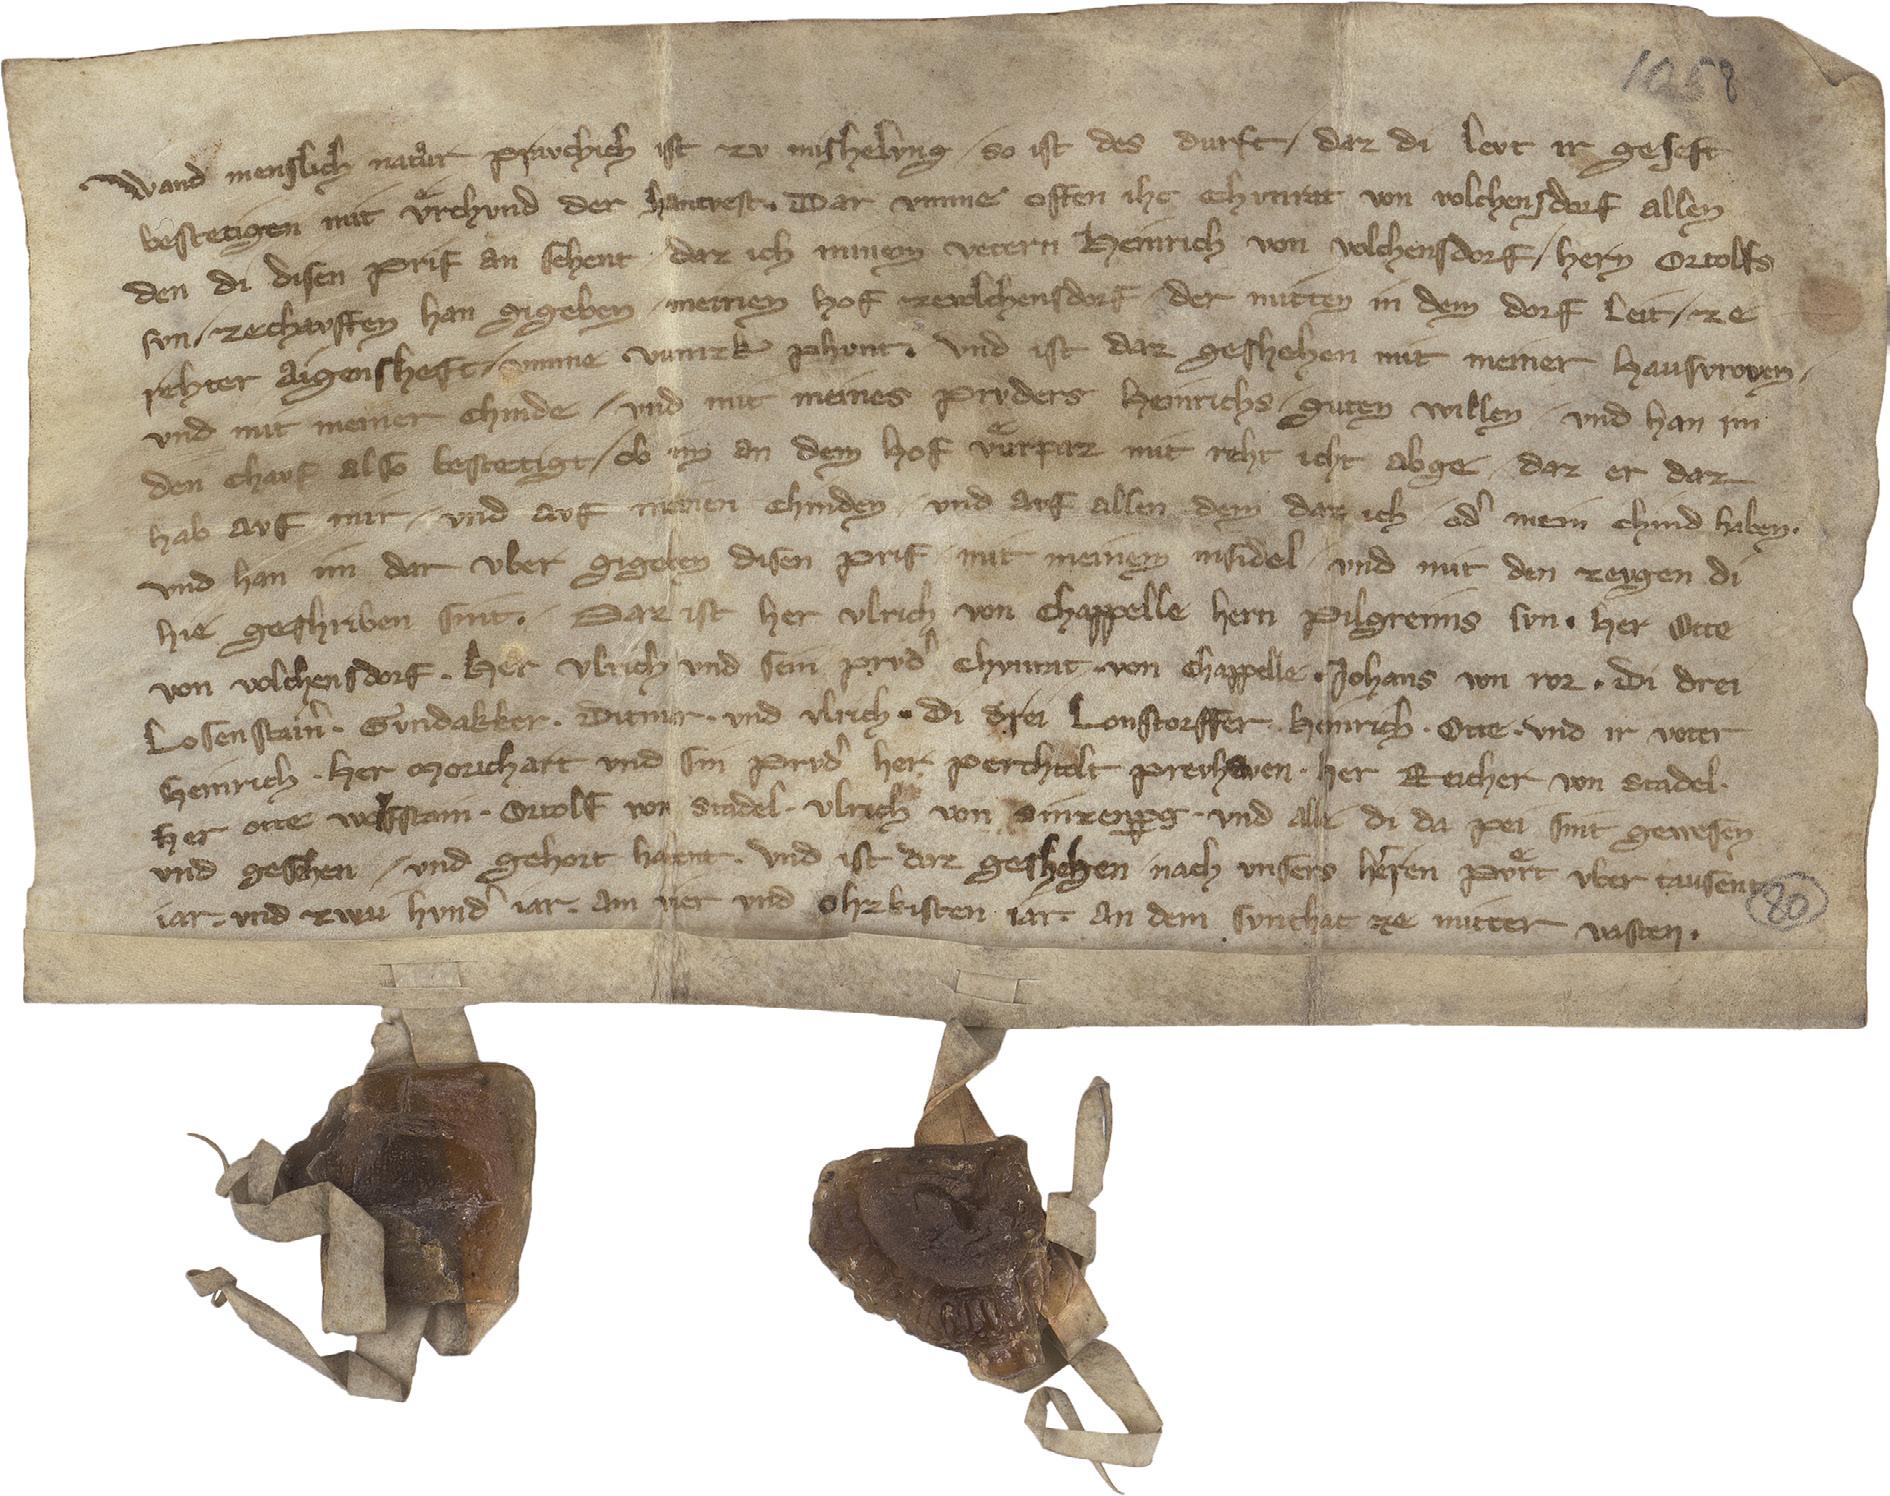 1058
Wand menslich natuͦr pravchich ist zv mishelvng / so ist des durft / daz di levt ir gescft
bestetigen mit vͤrchvnd der hantvest. Dar vmme offen ihc Chvnrat von volchensdorf allen
den di disen prif an sehent daz ich minem vetern Heinrich von volchensdorf / hern Ortolfs
svn / ze chavffen han gigeben meinen hof ze volchensdorf der mitten in dem dorf leit / ze
rehter aigenscheft / vmme vumzk phvnt. Vnd ist daz geshehen mit meiner hausvrowen /
vnd mit meiner chinde / vnd mit meines prvders Heinrichs guten willen vnd han im
den chavf also bestetigt / ob im an dem hof vuͤrpaz mit reht icht abge daz er daz
hab avf mir / vnd avf meinen chinden vnd avf allen dem daz ich od' mein chind haben.
vnd han im dar vber gigeben disen prif mit meinem insidel vnd mit den zevgen di
hie geshriben sint. Daz ist her vlrich von Chappelle hern Pilgreims svn. her Otte
von volchensdorf. Her Vlrich vnd sein prvd' Chvnrat von Chappelle. Johans von ror. Di drei
Losenstain'. Gvndakker. Ditmir. vnd vlrich. di drei Lonstorffer. Heinrich. Otte. vnd ir veter
Heinrich. her Morichart vnd sin prvd' her perchtolt prevhaven. her Reicher von stadel.
her otte wolfstain. Ortolf von stadel. vlrich von sinzenperg. vnd alle di da pei sint gewesen
vnd gesehen / vnd gehort habnt. Vnd ist daz geshehen nach vnsers herren pvͤrt vber tausent
iar. vnd zwai hvnd' iar. am vier vnd ohzkisten iar. an dem svnthac ze mitter vasten.
80